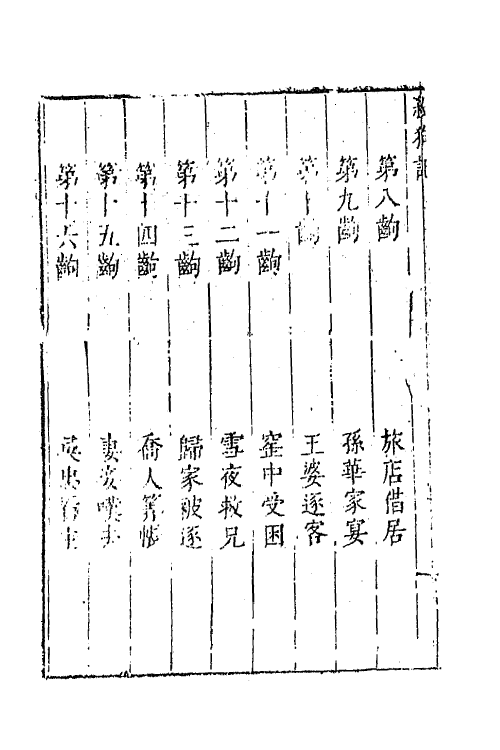 殺狗記
第八齣 旅店借居
第九齣 孫華家宴
第十齣 王婆逐客
第十一齣 窰中受困
第十二齣 雪夜救兄
第十三齣 歸家被逐
第十四齣 喬人算帳
第十五齣 妻妾嘆夫
第十六齣 吳忠看主